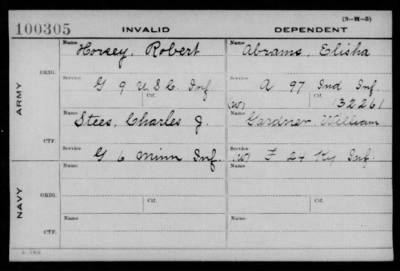 (3-M-3)
100305 INVALID DEPENDENT
Name Horsey, Robert Name Abrams, Elisha
ARMY
ORIG. Service G 9 U.S.C. Inf Ctf. Service A 97 Ind Inf. Ctf.
(W) 132261
Name Stees, Charles J. Name Gardner, William
CTF. G 6 Minn Inf. (W) F 24 Ky Inf.
NAVY
Name Name
ORIG. Service Ctf. Service Ctf.
Name Name
CTF.